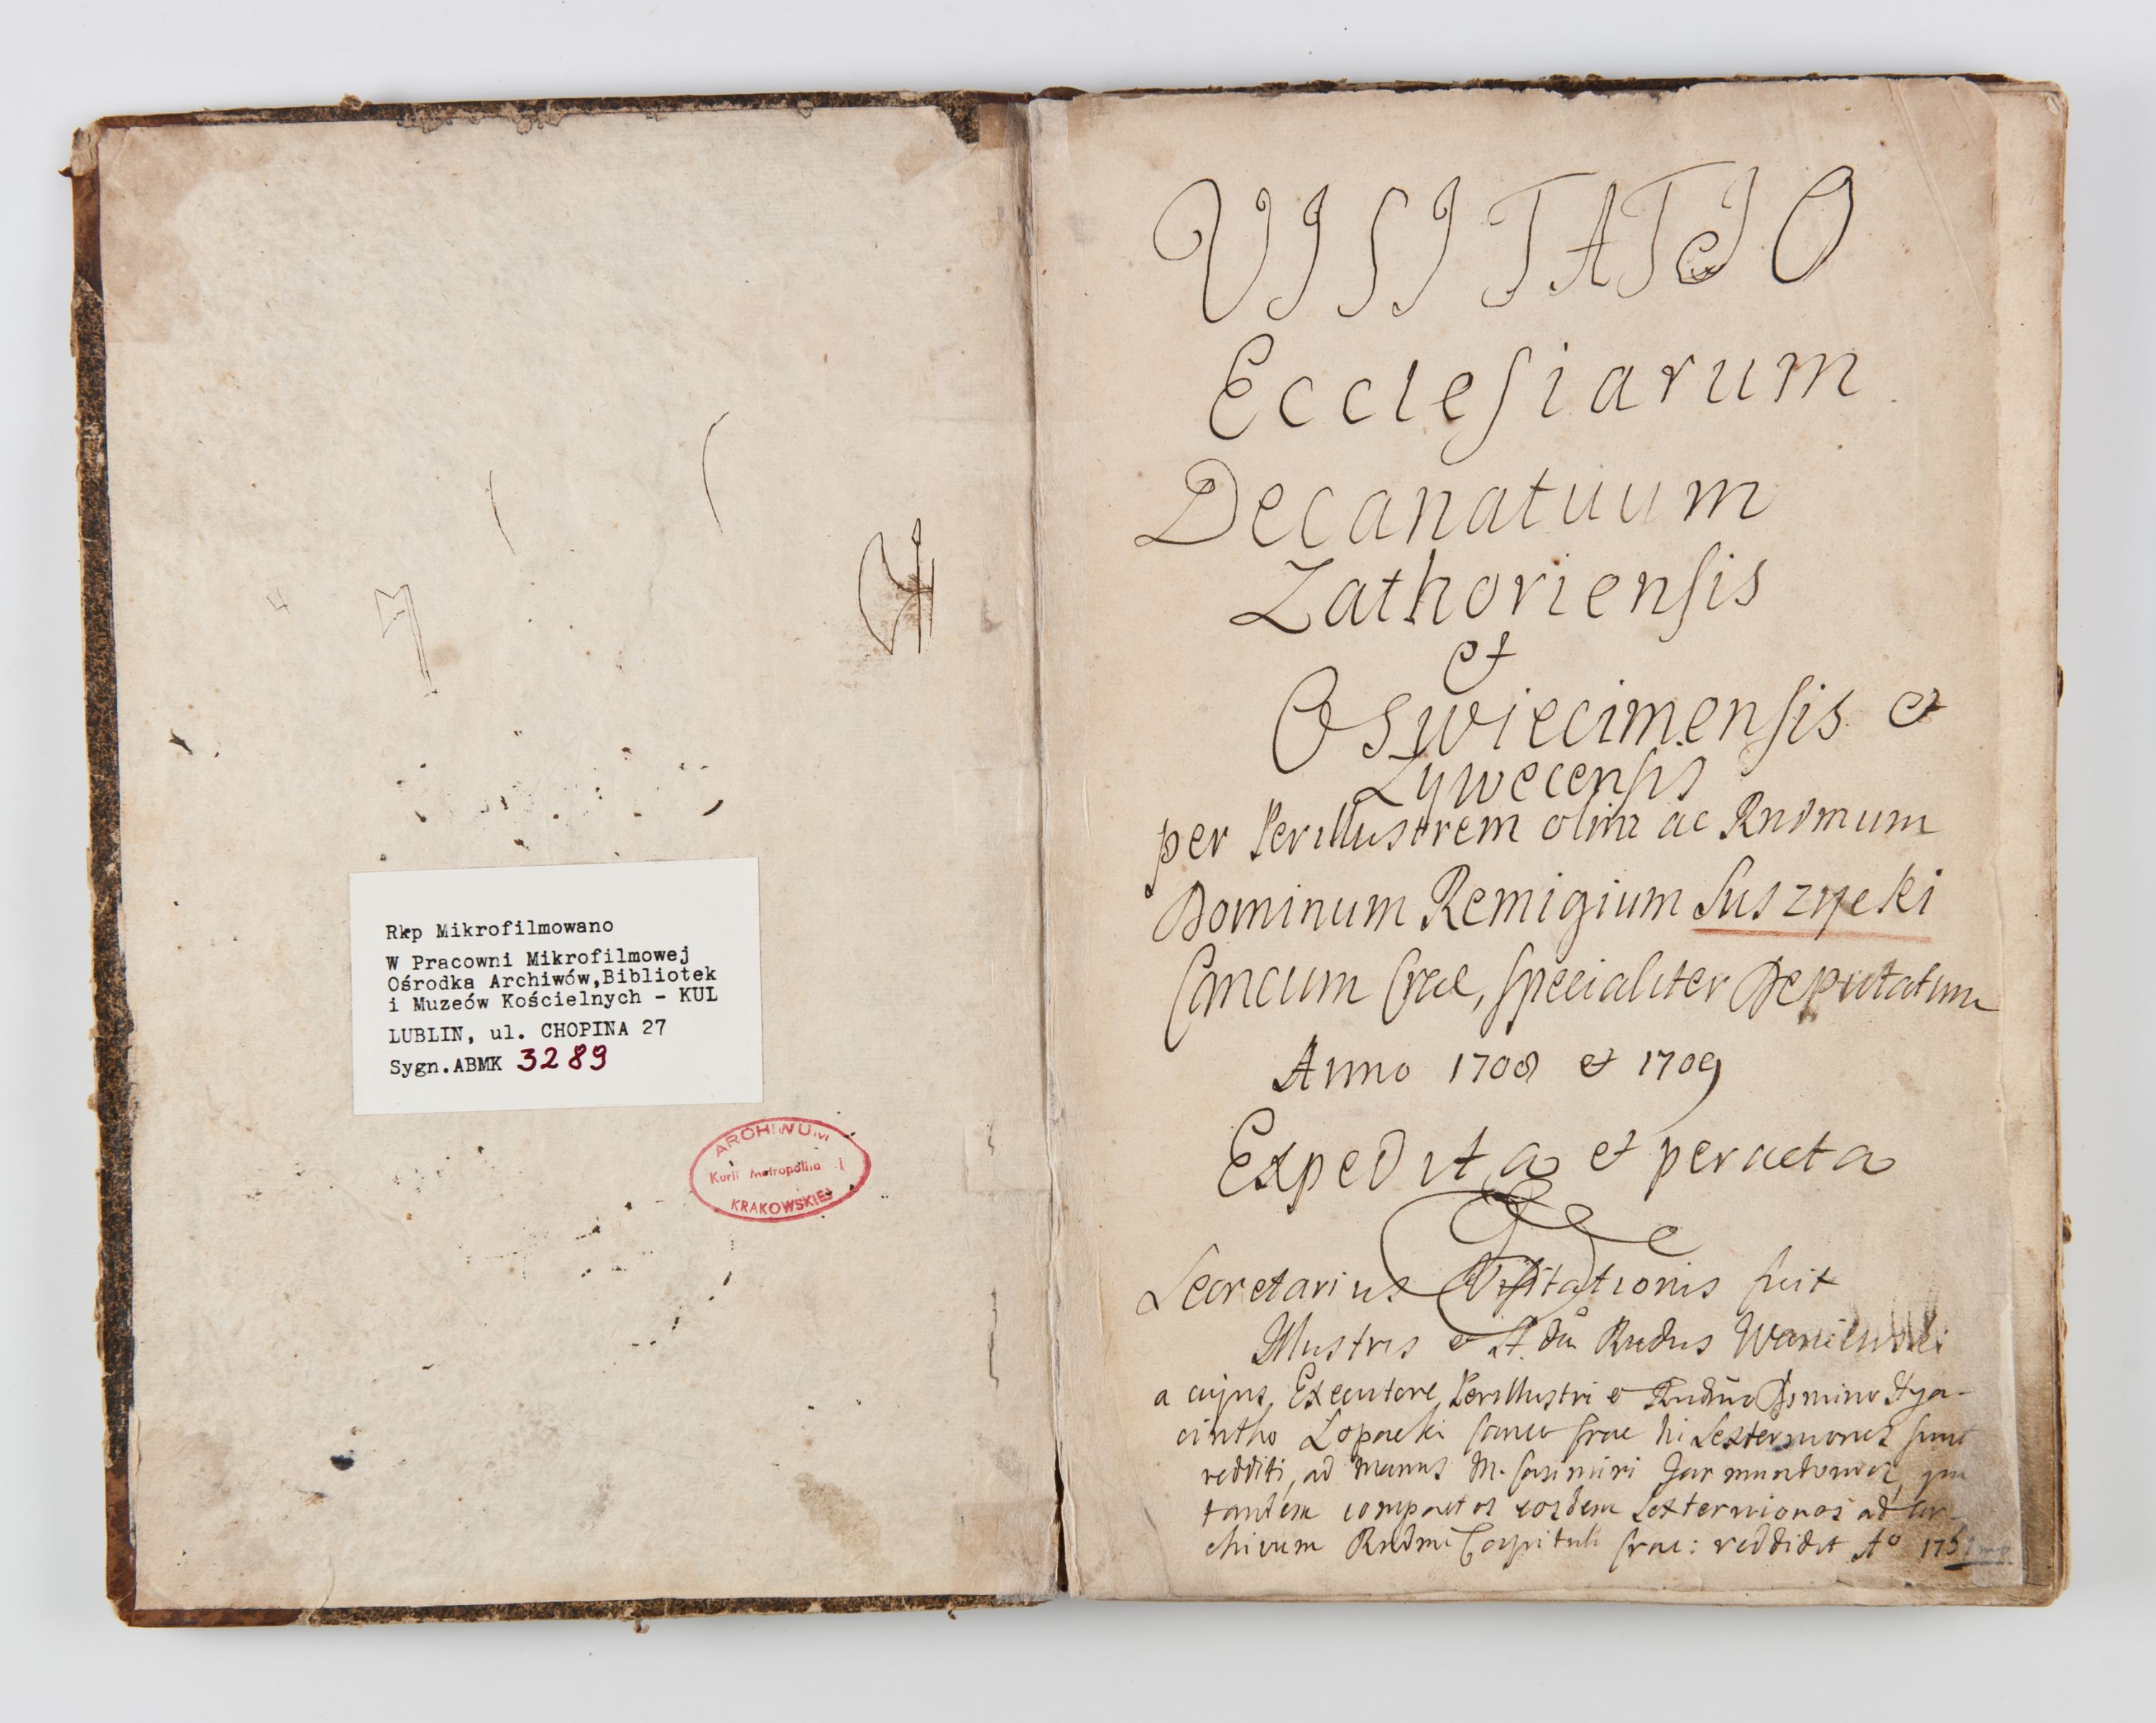 Rkp Mikrofilmowano
W Pracowni Mikrofilmowej
Ośrodka Archiwów,Bibliotek
i Muzeów Kościelnych - KUL
LUBLIN, ul. CHOPINA 27
Sygn.ABMK 3289
ARCHIWUM
Kurii Metropolita i
KRAKOWSKIEJ
VISITATIO
Ecclesiarum
Decanatuum
Zathoriensis
et
Oswiecimensis et
Zywecensis
per Perillustrem olim ac Rndmum
Dominum Remigium Suszycki
Cancum Crac, specialiter Deputatum
Anno 1708 et 1709
Expedita et peracta
Secretarius Visitationis fuit
Illustris et A. Rndus
a cujus Executore Perillustri et Rndmo Domino Hya-
cintho Łopacki Canco Crac hi Sexterniones sunt
redditi, ad manus M. Casimiri Jarmuntowicz, qui
tandem compactos eosdem Sexterniones ad Ar-
chivum Rndmi Capituli Crac: reddidit Ao